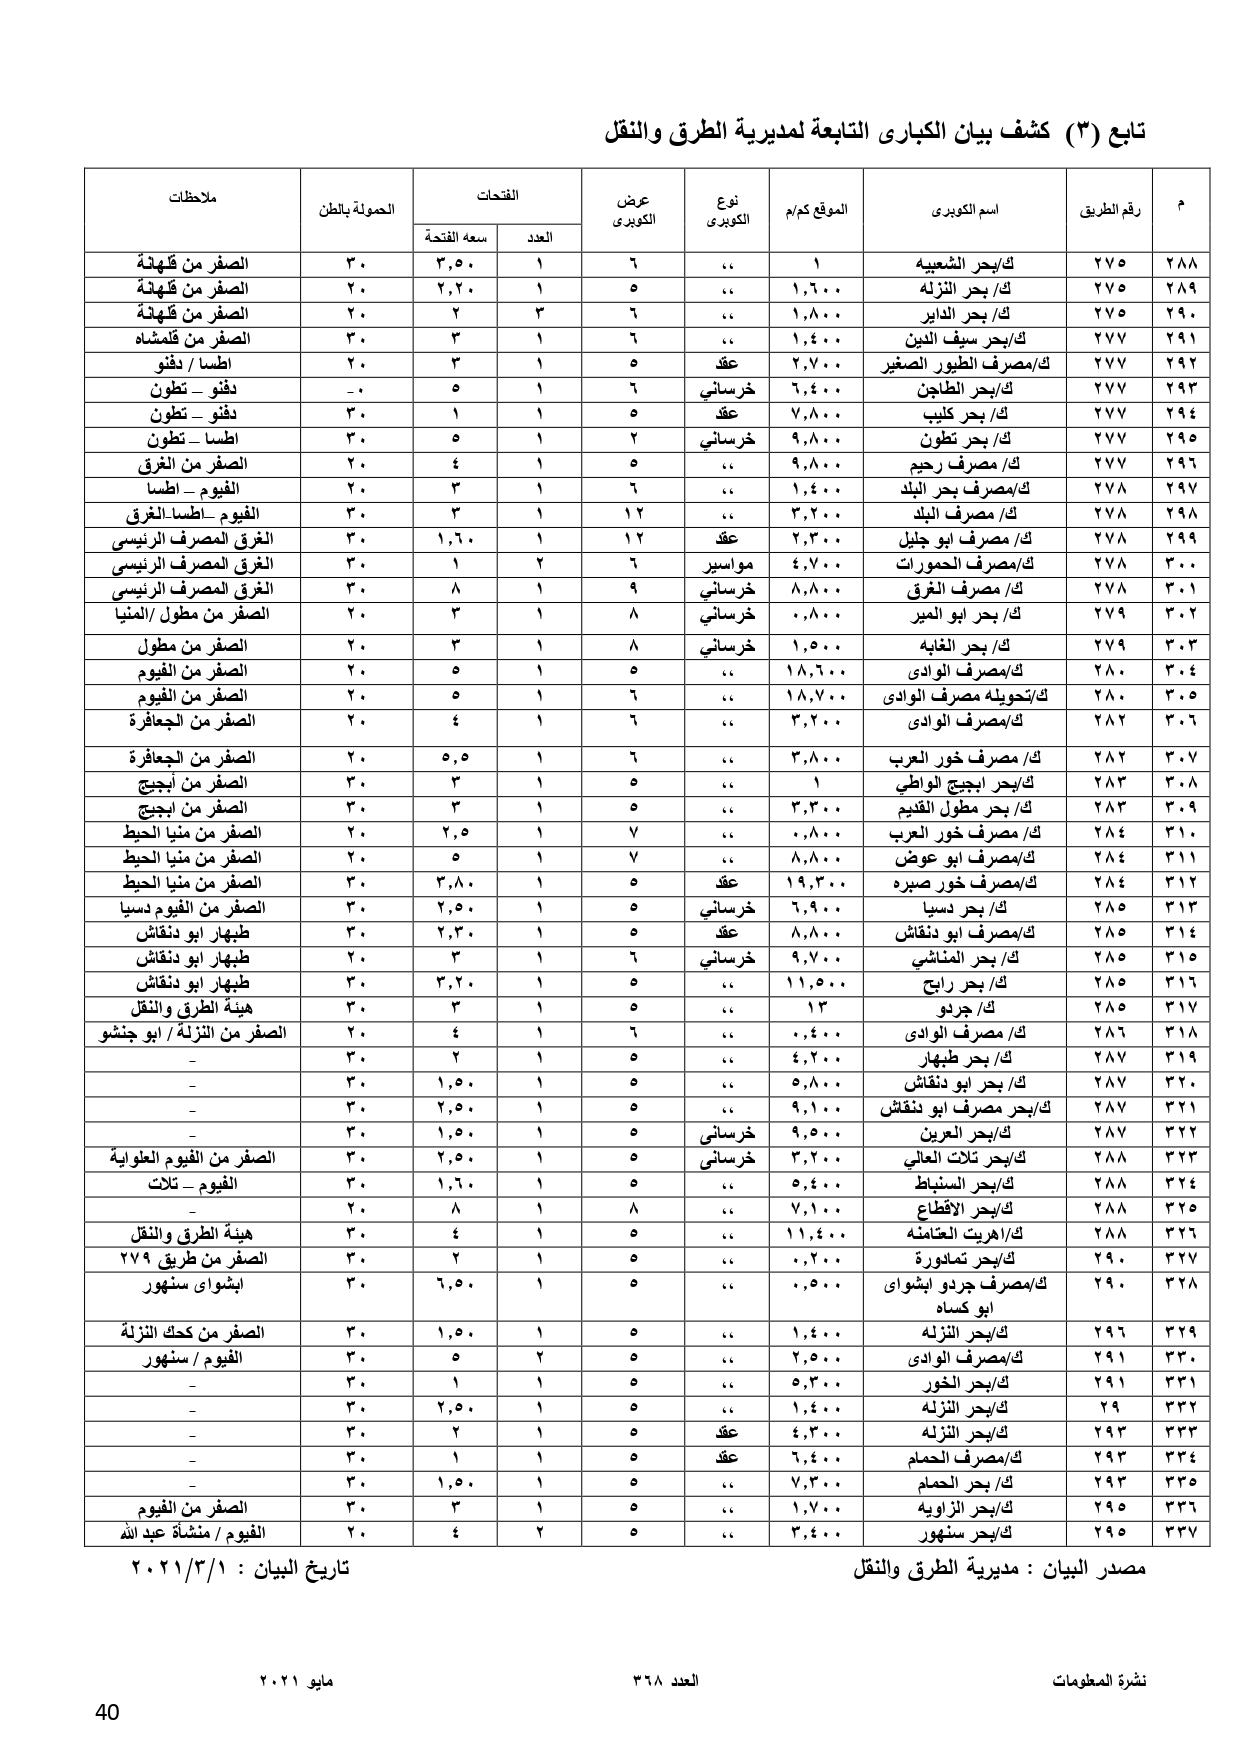 تابع (٣) كشف بيان الكبارى التابعة لمديرية الطرق والنقل
م رقم الطريق اسم الكوبرى الموقع كم/م نوع الكوبرى عرض الكوبرى الفتحات الحمولة بالطن ملاحظات
العدد سعه الفتحة
٢٨٨ ٢٧٥ ك/بحر الشعبيه ١ ،، ٦ ١ ٣,٥٠ ٣٠ الصفر من قلهانة
٢٨٩ ٢٧٥ ك/ بحر النزله ١,٦٠٠ ،، ٥ ١ ٢,٢٠ ٢٠ الصفر من قلهانة
٢٩٠ ٢٧٥ ك/ بحر الداير ١,٨٠٠ ،، ٦ ٣ ٢ ٢٠ الصفر من قلهانة
٢٩١ ٢٧٧ ك/بحر سيف الدين ١,٤٠٠ ،، ٦ ١ ٣ ٣٠ الصفر من قلمشاه
٢٩٢ ٢٧٧ ك/مصرف الطيور الصغير ٢,٧٠٠ عقد ٥ ١ ٣ ٢٠ اطسا / دفنو
٢٩٣ ٢٧٧ ك/بحر الطاجن ٦,٤٠٠ خرساني ٦ ١ ٥ ٠- دفنو – تطون
٢٩٤ ٢٧٧ ك/ بحر كليب ٧,٨٠٠ عقد ٥ ١ ١ ٣٠ دفنو – تطون
٢٩٥ ٢٧٧ ك/ بحر تطون ٩,٨٠٠ خرساني ٢ ١ ٥ ٣٠ اطسا – تطون
٢٩٦ ٢٧٧ ك/ مصرف رحيم ٩,٨٠٠ ،، ٥ ١ ٤ ٢٠ الصفر من الغرق
٢٩٧ ٢٧٨ ك/مصرف بحر البلد ١,٤٠٠ ،، ٦ ١ ٣ ٢٠ الفيوم – اطسا
٢٩٨ ٢٧٨ ك/ مصرف البلد ٣,٢٠٠ ،، ١٢ ١ ٣ ٣٠ الفيوم –اطسا-الغرق
٢٩٩ ٢٧٨ ك/ مصرف ابو جليل ٢,٣٠٠ عقد ١٢ ١ ١,٦٠ ٣٠ الغرق المصرف الرئيسى
٣٠٠ ٢٧٨ ك/مصرف الحمورات ٤,٧٠٠ مواسير ٦ ٢ ١ ٣٠ الغرق المصرف الرئيسى
٣٠١ ٢٧٨ ك/ مصرف الغرق ٨,٨٠٠ خرساني ٩ ١ ٨ ٣٠ الغرق المصرف الرئيسى
٣٠٢ ٢٧٩ ك/ بحر ابو المير ٠,٨٠٠ خرساني ٨ ١ ٣ ٢٠ الصفر من مطول /المنيا
٣٠٣ ٢٧٩ ك/ بحر الغابه ١,٥٠٠ خرساني ٨ ١ ٣ ٢٠ الصفر من مطول
٣٠٤ ٢٨٠ ك/مصرف الوادى ١٨,٦٠٠ ،، ٥ ١ ٥ ٢٠ الصفر من الفيوم
٣٠٥ ٢٨٠ ك/تحويله مصرف الوادى ١٨,٧٠٠ ،، ٦ ١ ٥ ٢٠ الصفر من الفيوم
٣٠٦ ٢٨٢ ك/مصرف الوادى ٣,٢٠٠ ،، ٦ ١ ٤ ٢٠ الصفر من الجعافرة
٣٠٧ ٢٨٢ ك/ مصرف خور العرب ٣,٨٠٠ ،، ٦ ١ ٥,٥ ٢٠ الصفر من الجعافرة
٣٠٨ ٢٨٣ ك/بحر ابجيج الواطي ١ ،، ٥ ١ ٣ ٣٠ الصفر من أبجيج
٣٠٩ ٢٨٣ ك/ بحر مطول القديم ٣,٣٠٠ ،، ٥ ١ ٣ ٣٠ الصفر من ابجيج
٣١٠ ٢٨٤ ك/ مصرف خور العرب ٠,٨٠٠ ،، ٧ ١ ٢,٥ ٢٠ الصفر من منيا الحيط
٣١١ ٢٨٤ ك/مصرف ابو عوض ٨,٨٠٠ ،، ٧ ١ ٥ ٢٠ الصفر من منيا الحيط
٣١٢ ٢٨٤ ك/مصرف خور صبره ١٩,٣٠٠ عقد ٥ ١ ٣,٨٠ ٣٠ الصفر من منيا الحيط
٣١٣ ٢٨٥ ك/ بحر دسيا ٦,٩٠٠ خرساني ٥ ١ ٢,٥٠ ٣٠ الصفر من الفيوم دسيا
٣١٤ ٢٨٥ ك/مصرف ابو دنقاش ٨,٨٠٠ عقد ٥ ١ ٢,٣٠ ٣٠ طبهار ابو دنقاش
٣١٥ ٢٨٥ ك/ بحر المناشي ٩,٧٠٠ خرساني ٦ ١ ٣ ٢٠ طبهار ابو دنقاش
٣١٦ ٢٨٥ ك/ بحر رابح ١١,٥٠٠ ،، ٥ ١ ٣,٢٠ ٣٠ طبهار ابو دنقاش
٣١٧ ٢٨٥ ك/ جردو ١٣ ،، ٥ ١ ٣ ٣٠ هيئة الطرق والنقل
٣١٨ ٢٨٦ ك/ مصرف الوادى ٠,٤٠٠ ،، ٦ ١ ٤ ٢٠ الصفر من النزلة / ابو جنشو
٣١٩ ٢٨٧ ك/ بحر طبهار ٤,٢٠٠ ،، ٥ ١ ٢ ٣٠ -
٣٢٠ ٢٨٧ ك/ بحر ابو دنقاش ٥,٨٠٠ ،، ٥ ١ ١,٥٠ ٣٠ -
٣٢١ ٢٨٧ ك/بحر مصرف ابو دنقاش ٩,١٠٠ ،، ٥ ١ ٢,٥٠ ٣٠ -
٣٢٢ ٢٨٧ ك/بحر العرين ٩,٥٠٠ خرسانى ٥ ١ ١,٥٠ ٣٠ -
٣٢٣ ٢٨٨ ك/بحر تلات العالي ٣,٢٠٠ خرسانى ٥ ١ ٢,٥٠ ٣٠ الصفر من الفيوم العلواية
٣٢٤ ٢٨٨ ك/بحر السنباط ٥,٤٠٠ ،، ٥ ١ ١,٦٠ ٣٠ الفيوم – تلات
٣٢٥ ٢٨٨ ك/بحر الاقطاع ٧,١٠٠ ،، ٨ ١ ٨ ٢٠ -
٣٢٦ ٢٨٨ ك/اهريت العتامنه ١١,٤٠٠ ،، ٥ ١ ٤ ٣٠ هيئة الطرق والنقل
٣٢٧ ٢٩٠ ك/بحر تمادورة ٠,٢٠٠ ،، ٥ ١ ٢ ٣٠ الصفر من طريق ٢٧٩
٣٢٨ ٢٩٠ ك/مصرف جردو ابشواى ٠,٥٠٠ ،، ٥ ١ ٦,٥٠ ٣٠ ابشواى سنهور
ابو كساه
٣٢٩ ٢٩٦ ك/بحر النزله ١,٤٠٠ ،، ٥ ١ ١,٥٠ ٣٠ الصفر من كحك النزلة
٣٣٠ ٢٩١ ك/مصرف الوادى ٢,٥٠٠ ،، ٥ ٢ ٥ ٣٠ الفيوم / سنهور
٣٣١ ٢٩١ ك/بحر الخور ٥,٣٠٠ ،، ٥ ١ ١ ٣٠ -
٣٣٢ ٢٩ ك/بحر النزله ١,٤٠٠ ،، ٥ ١ ٢,٥٠ ٣٠ -
٣٣٣ ٢٩٣ ك/بحر النزله ٤,٣٠٠ عقد ٥ ١ ٢ ٣٠ -
٣٣٤ ٢٩٣ ك/مصرف الحمام ٦,٤٠٠ عقد ٥ ١ ١ ٣٠ -
٣٣٥ ٢٩٣ ك/ بحر الحمام ٧,٣٠٠ ،، ٥ ١ ١,٥٠ ٣٠ -
٣٣٦ ٢٩٥ ك/بحر الزاويه ١,٧٠٠ ،، ٥ ١ ٣ ٣٠ الصفر من الفيوم
٣٣٧ ٢٩٥ ك/بحر سنهور ٣,٤٠٠ ،، ٥ ٢ ٤ ٢٠ الفيوم / منشأة عبد الله
مصدر البيان : مديرية الطرق والنقل تاريخ البيان : ٢٠٢١/٣/١
نشرة المعلومات العدد ٣٦٨ مايو ٢٠٢١
40